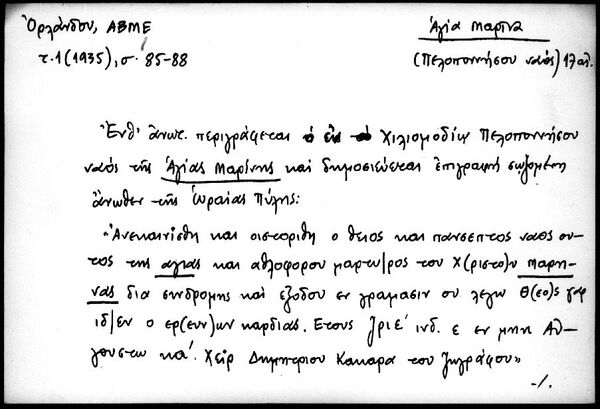 Ὀρλάνδου, ΑΒΜΕ
Ἁγία Μαρίνα
τ.1 (1935), σ. 85-88
(Πελοποννήσου ναός) 17 αἰ.
Ἐνθ' ἄνωτ. περιγράφεται ὁ ἐν τῷ Χιλιομοδίῳ Πελοποννήσου
ναός τῆς Ἁγίας Μαρίνης καί δημοσιεύεται ἐπιγραφή σῳζομένη
ἄνωθεν τῆς Ὡραίας Πύλης:
"Ανεκαινίσθη και οιστορίθη ο θειος και πανσεπτος ναος ου-
τος της αγιας και αθλοφορου μαρτυ/ρος του Χ(ριστο)υ Μαρη-
νας δια συνδρομης και εξοδου εν γραμασιν ου λεγω Θ(εο)ς γαρ
ιδ/εν ο ερ(ευν)ων καρδιας. Ετους ͵ζριε´ ινδ. ε εν μηνι Αυ-
γουστω κα´. Χείρ Δημητριου Κακαρα του ζωγράφου»
-/.